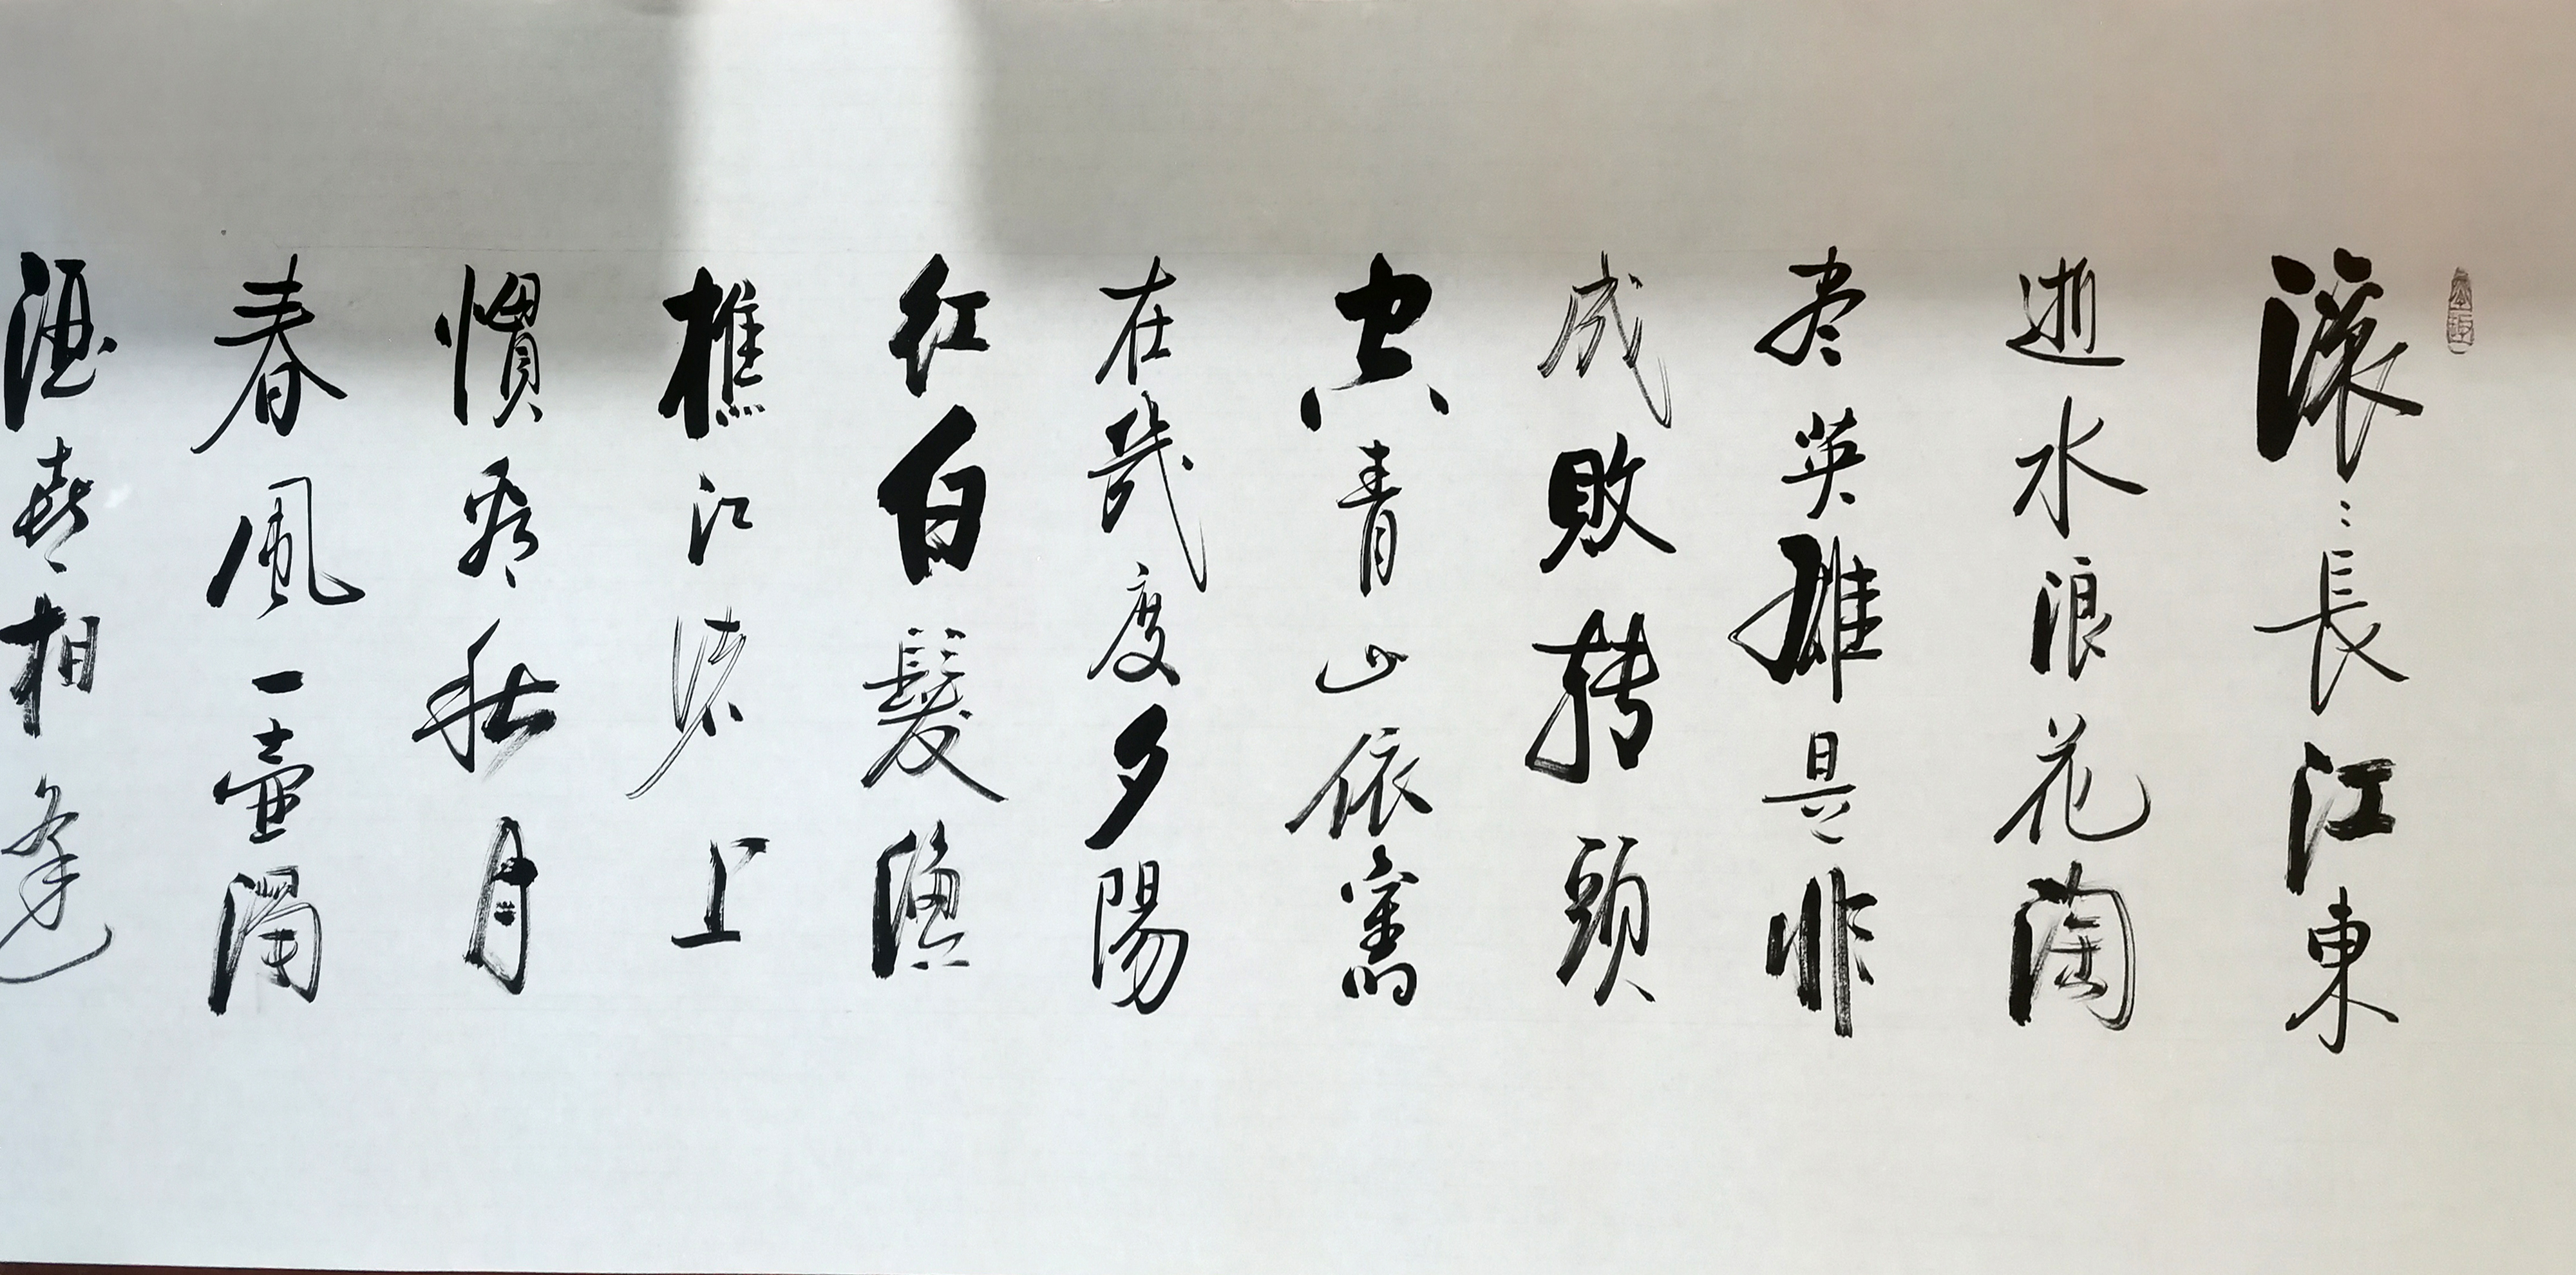 滚〻長江東
逝水浪花淘
尽英雄是非
成敗转頭
空青山依舊
在幾度夕陽
红白髮漁
樵江渚上
慣看秋月
春風一壺濁
酒喜相逢